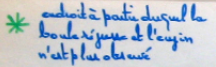 endroit à partir duquel la
boule rejoue et l'engin
n'est plus observé